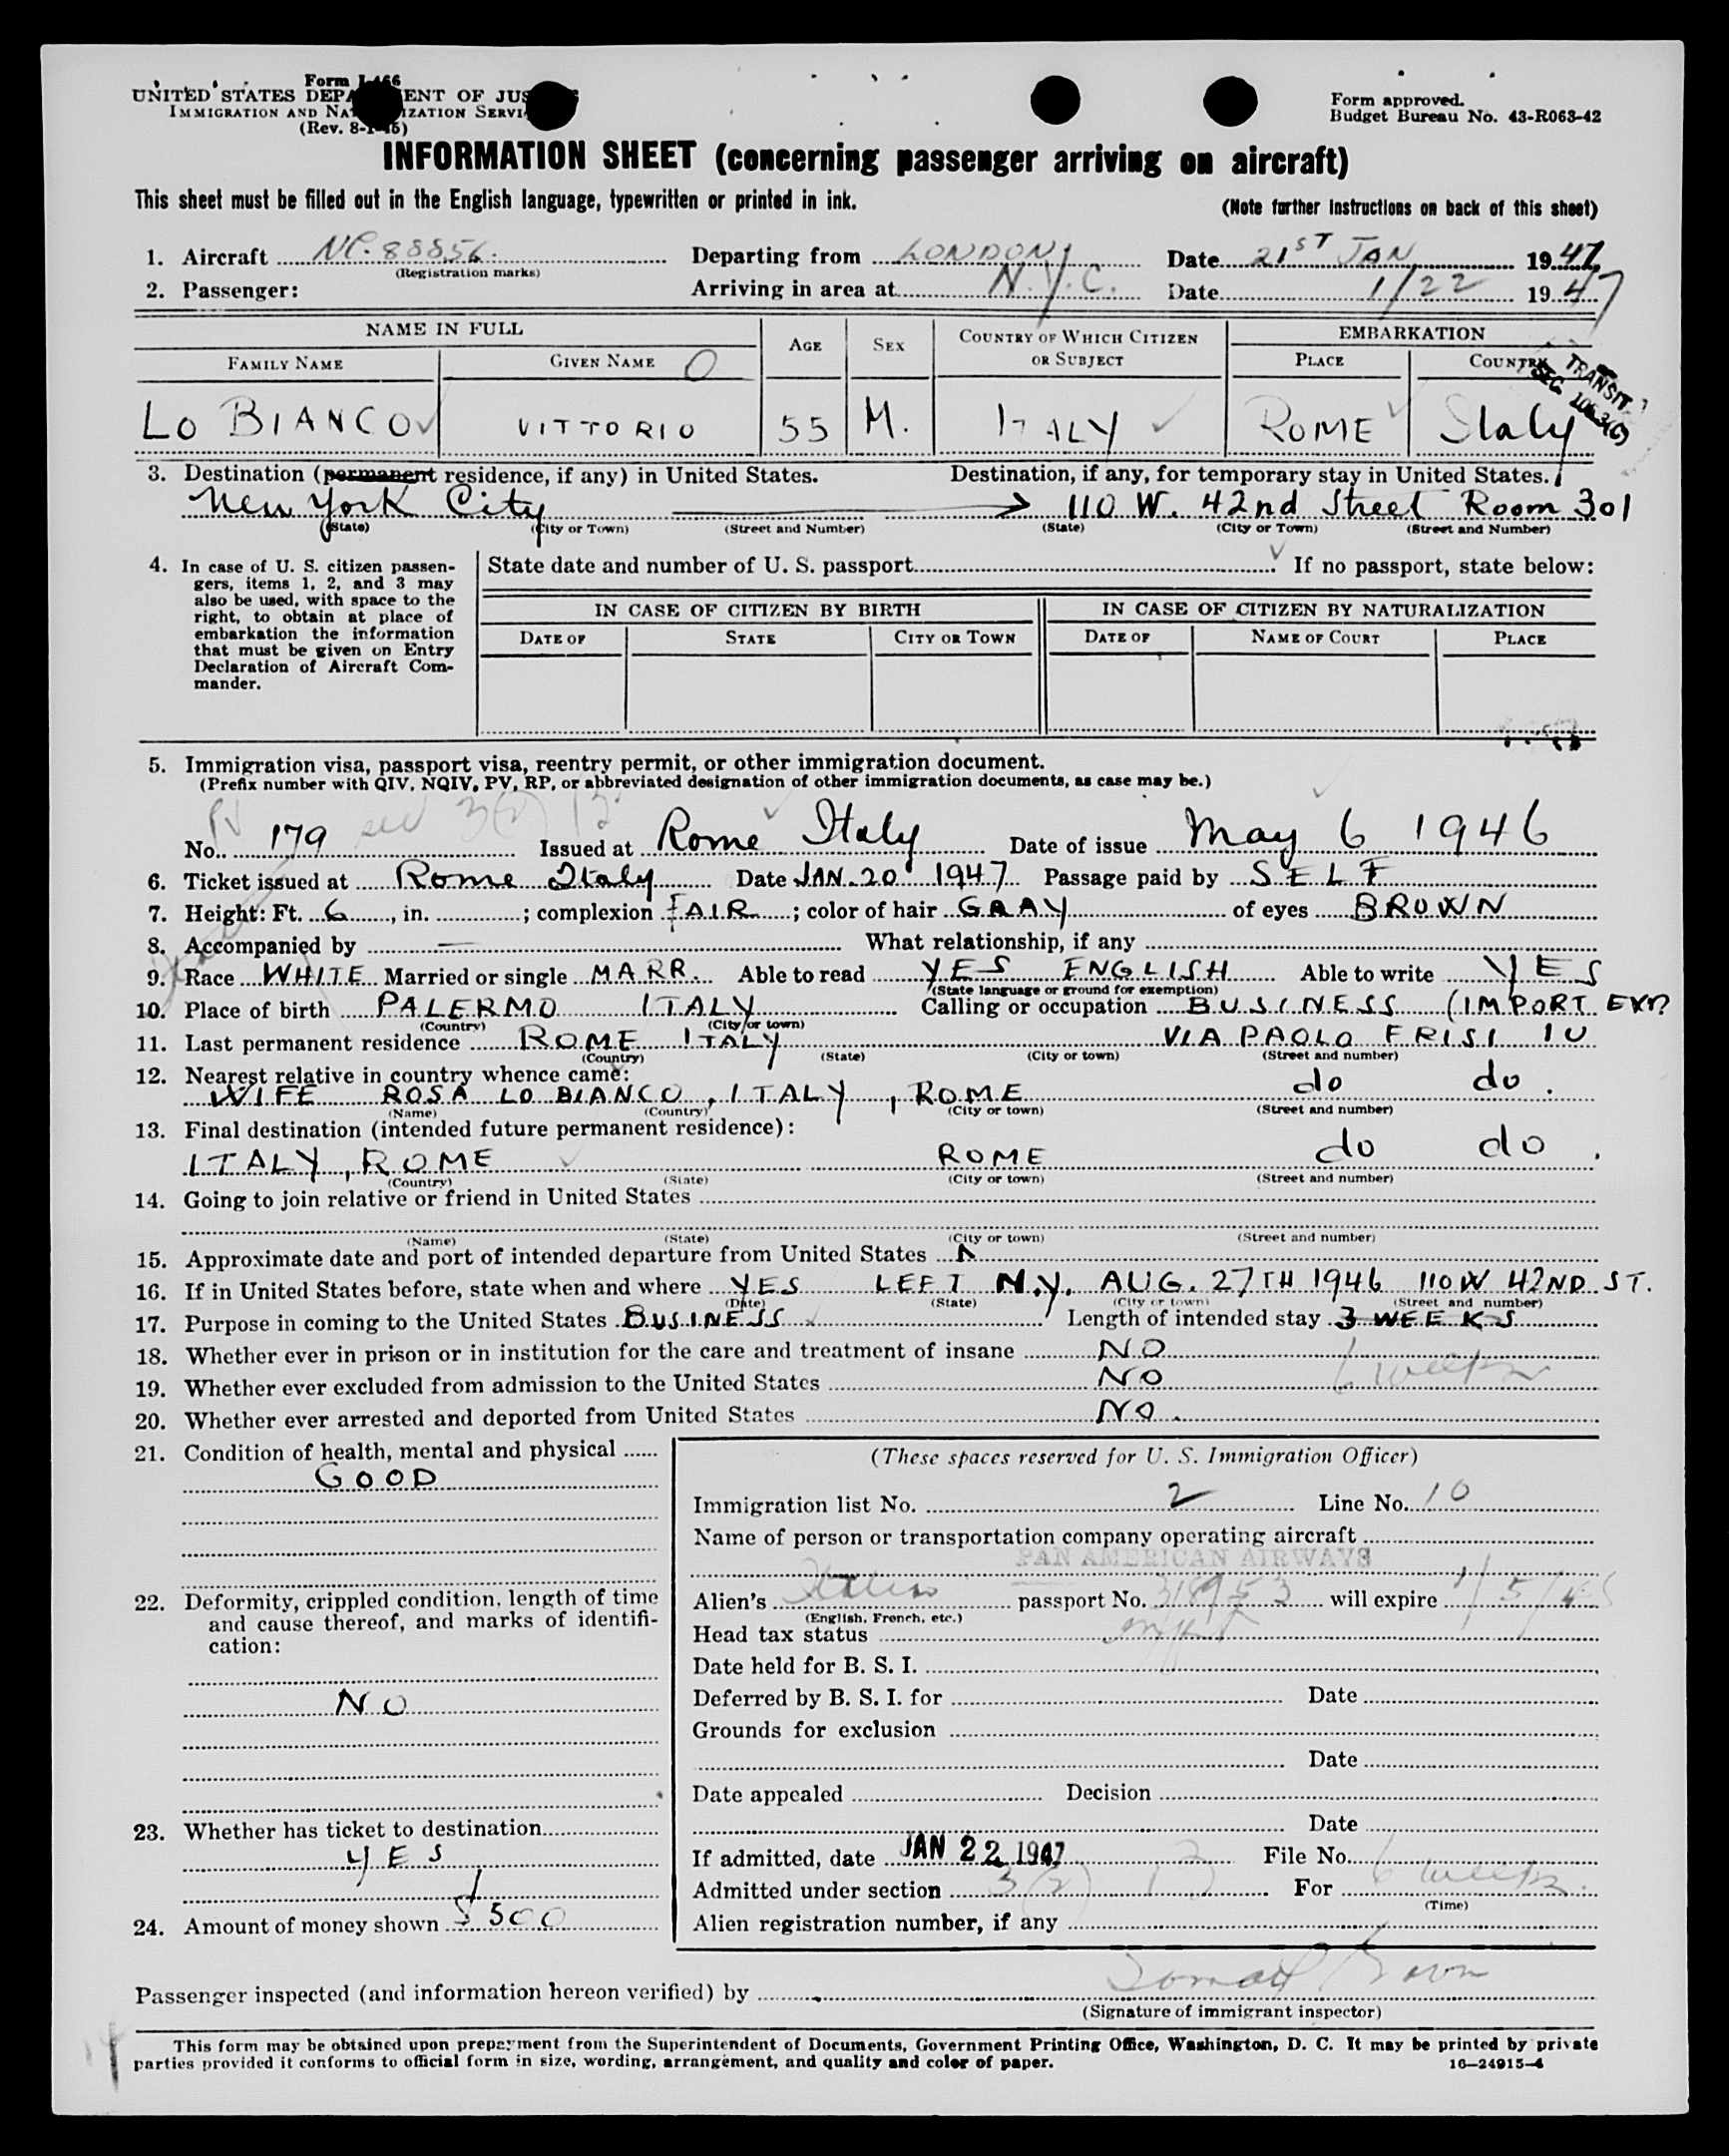 Form I-466
UNITED STATES DEPARTMENT OF JUSTICE
IMMIGRATION AND NATURALIZATION SERVICE
(Rev. 8-1-45)
Form approved.
Budget Bureau No. 43-R063-42
INFORMATION SHEET (concerning passenger arriving on aircraft)
This sheet must be filled out in the English language, typewritten or printed in ink.
(Note further instructions on back of this sheet)
1. Aircraft NC. 88856. Departing from LONDON Date 21ST JAN 1947
(Registration marks)
2. Passenger: Arriving in area at N.Y.C. Date 1/22 1947
NAME IN FULL AGE SEX COUNTRY OF WHICH CITIZEN OR SUBJECT EMBARKATION
FAMILY NAME GIVEN NAME PLACE COUNTRY
TRANSIT
SEC. 106.3(G)
LO BIANCO VITTORIO 55 M. ITALY ROME Italy
3. Destination (permanent residence, if any) in United States. Destination, if any, for temporary stay in United States.
New York City 110 W. 42nd Street Room 301
(State) (City or Town) (Street and Number) (State) (City or Town) (Street and Number)
4. In case of U. S. citizen passen-
gers, items 1, 2, and 3 may
also be used, with space to the
right, to obtain at place of
embarkation the information
that must be given on Entry
Declaration of Aircraft Com-
mander.
State date and number of U. S. passport If no passport, state below:
IN CASE OF CITIZEN BY BIRTH IN CASE OF CITIZEN BY NATURALIZATION
DATE OF STATE CITY OR TOWN DATE OF NAME OF COURT PLACE
5. Immigration visa, passport visa, reentry permit, or other immigration document.
(Prefix number with QIV, NQIV, PV, RP, or abbreviated designation of other immigration documents, as case may be.)
PV 3(2)
No. 179 Issued at Rome Italy Date of issue May 6 1946
6. Ticket issued at Rome Italy Date JAN. 20 1947 Passage paid by SELF
7. Height: Ft. 6, in. ; complexion FAIR; color of hair GRAY of eyes BROWN
8. Accompanied by — What relationship, if any
9. Race WHITE Married or single MARR. Able to read YES ENGLISH Able to write YES
(State language or ground for exemption)
10. Place of birth PALERMO ITALY Calling or occupation BUSINESS (IMPORT EXP)
(Country) (City or town)
11. Last permanent residence ROME ITALY VIA PAOLO FRISI
(Country) (State) (City or town) (Street and number)
12. Nearest relative in country whence came:
WIFE ROSA LO BIANCO, ITALY, ROME do do.
(Name) (Country) (City or town) (Street and number)
13. Final destination (intended future permanent residence):
ITALY, ROME ROME do do.
(Country) (State) (City or town) (Street and number)
14. Going to join relative or friend in United States
(Name) (State) (City or town) (Street and number)
15. Approximate date and port of intended departure from United States
16. If in United States before, state when and where YES LEFT N.Y. AUG. 27TH 1946 110 W 42ND ST.
(Date) (State) (City or town) (Street and number)
17. Purpose in coming to the United States BUSINESS Length of intended stay 3 WEEKS
18. Whether ever in prison or in institution for the care and treatment of insane NO
6 weeks
19. Whether ever excluded from admission to the United States NO
20. Whether ever arrested and deported from United States NO.
21. Condition of health, mental and physical
GOOD
22. Deformity, crippled condition, length of time
and cause thereof, and marks of identifi-
cation:
NO
23. Whether has ticket to destination
YES
24. Amount of money shown $ 500
(These spaces reserved for U. S. Immigration Officer)
Immigration list No. 2 Line No. 10
Name of person or transportation company operating aircraft
PAN AMERICAN AIRWAYS
Alien's Italian passport No. 318953 will expire 1/5/48
(English, French, etc.)
Head tax status
Date held for B. S. I.
Deferred by B. S. I. for Date
Grounds for exclusion
Date
Date appealed Decision
Date
If admitted, date JAN 22 1947 File No.
Admitted under section 3(2) For 6 weeks.
(Time)
Alien registration number, if any
Passenger inspected (and information hereon verified) by
(Signature of immigrant inspector)
This form may be obtained upon prepayment from the Superintendent of Documents, Government Printing Office, Washington, D. C. It may be printed by private
parties provided it conforms to official form in size, wording, arrangement, and quality and color of paper.
16—24915-4